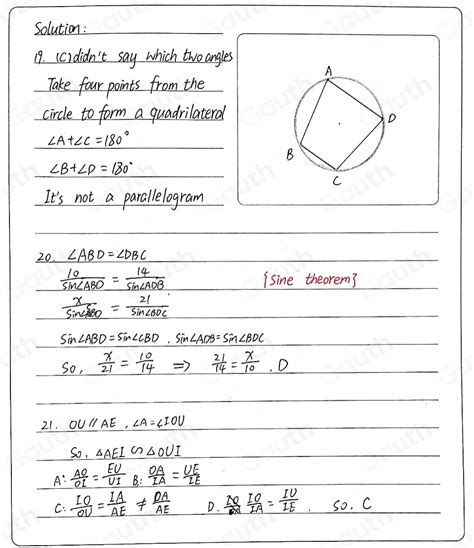 Solution:
19. (C) didn't say which two angles
Take four points from the
circle to form a quadrilateral
∠A+∠C=180°
∠B+∠D=180°
It's not a parallelogram
A
D
B
C
20. ∠ABD=∠DBC
10/sin∠ABD = 14/sin∠ADB
{Sine theorem}
= 21/sin∠BDC
sin∠ABD=sin∠CBD. sin∠ADB=sin∠BDC
So, x/21 = 10/14 ⇒ 21/14 = x/10. D
21. OU∥AE, ∠A=∠IOU
So, △AEI ∽ △OUI
A: AO/OI = EU/UI B: OA/IA = UE/IE
C: IO/OU = IA/AE ≠ OA/AE D. IO/IA = IU/IE. So. C
Gauth